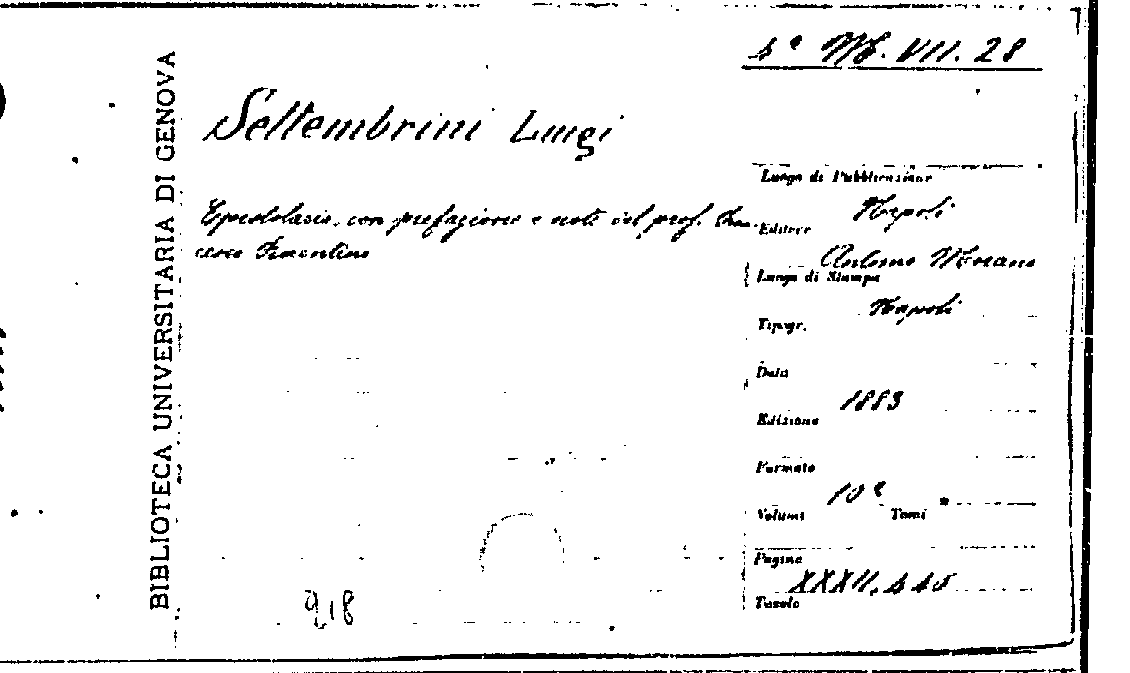 4º M. VII. 28
BIBLIOTECA UNIVERSITARIA DI GENOVA
Settembrini Luigi
Epistolario, con prefazione e note del prof. Fran-
cesco Fiorentino
Luogo di Pubblicazione
Napoli
Editore
Antonio Morano
Luogo di Stampa
Napoli
Tipogr.
Data
1883
Edizione
Formato
16º
Volumi Tomi
Pagine
XXXII, 445
Tavole
918